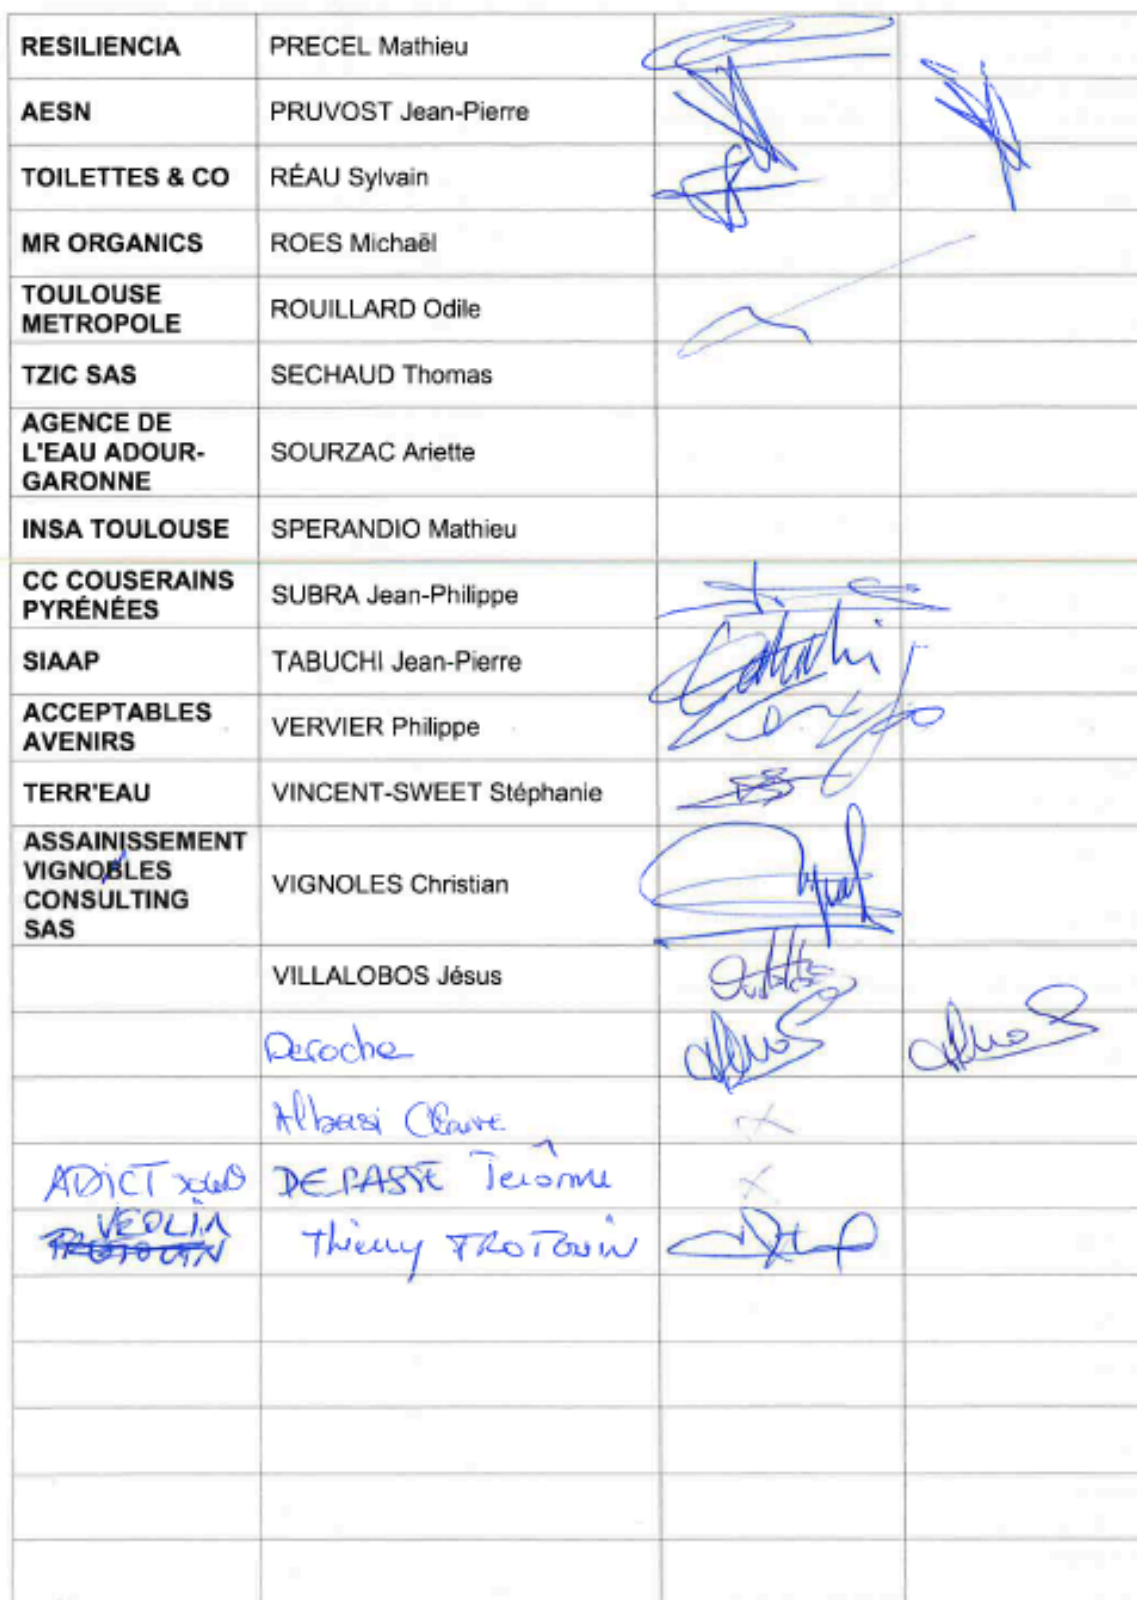 RESILIENCIA PRECEL Mathieu
AESN PRUVOST Jean-Pierre
TOILETTES & CO RÉAU Sylvain
MR ORGANICS ROES Michaël
TOULOUSE
METROPOLE ROUILLARD Odile
TZIC SAS SECHAUD Thomas
AGENCE DE
L'EAU ADOUR-
GARONNE
SOURZAC Ariette
INSA TOULOUSE SPERANDIO Mathieu
CC COUSERAINS
PYRÉNÉES
SUBRA Jean-Philippe
SIAAP TABUCHI Jean-Pierre
ACCEPTABLES
AVENIRS
VERVIER Philippe
TERR'EAU VINCENT-SWEET Stéphanie
ASSAINISSEMENT
VIGNOBLES
CONSULTING
SAS
VIGNOLES Christian
VILLALOBOS Jésus
Deroche
Albasi Claire
ADICT DEPASSE Jérôme
VEOLIA
Thierry TROTOUIN